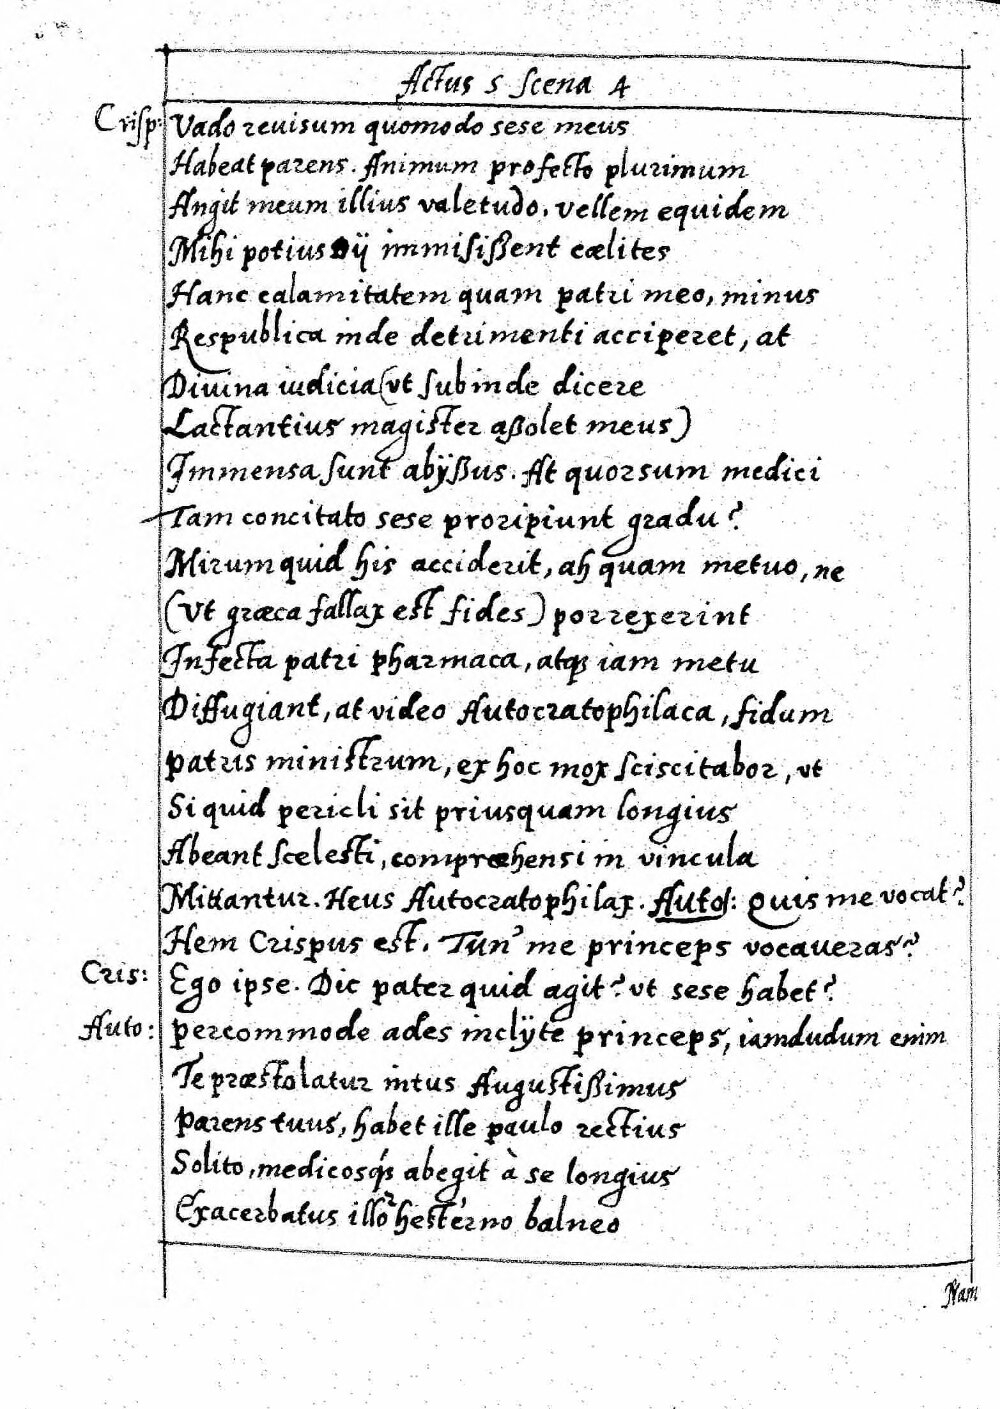 Actus 5 Scena 4
Crisp: Vado reuisum quomodo sese meus
Habeat parens. Animum profecto plurimum
Angit meum illius valetudo. vellem equidem
Mihi potius Dij immisißent cælites
Hanc calamitatem quam patri meo, minus
Respublica inde detrimenti acciperet, at
Diuina iudicia (vt subinde dicere
Lactantius magister aßolet meus)
Immensa sunt abÿßus. At quorsum medici
Tam concitato sese proripiunt gradu?
Mirum quid his acciderit, ah quam metuo, ne
(Vt græca fallax est fides) porrexerint
Infecta patri pharmaca, atqꝫ iam metu
Diffugiant, at video Autocratophilaca, fidum
patris ministrum, ex hoc mox sciscitabor, vt
Si quid pericli sit priusquam longius
Abeant scelesti, compræhensi in vincula
Mittantur. Heus Autocratophilax. Auto: Quis me vocat?
Hem Crispus est. Tun' me princeps vocaueras?
Cris: Ego ipse. Dic pater quid agit? vt sese habet?
Auto: percommode ades inclÿte princeps, iamdudum enim
Te præstolatur intus Augustißimus
Parens tuus, habet ille paulo rectius
Solito, medicosqꝫ abegit à se longius
Exacerbatus illoꝝ hesterno balneo
Nam